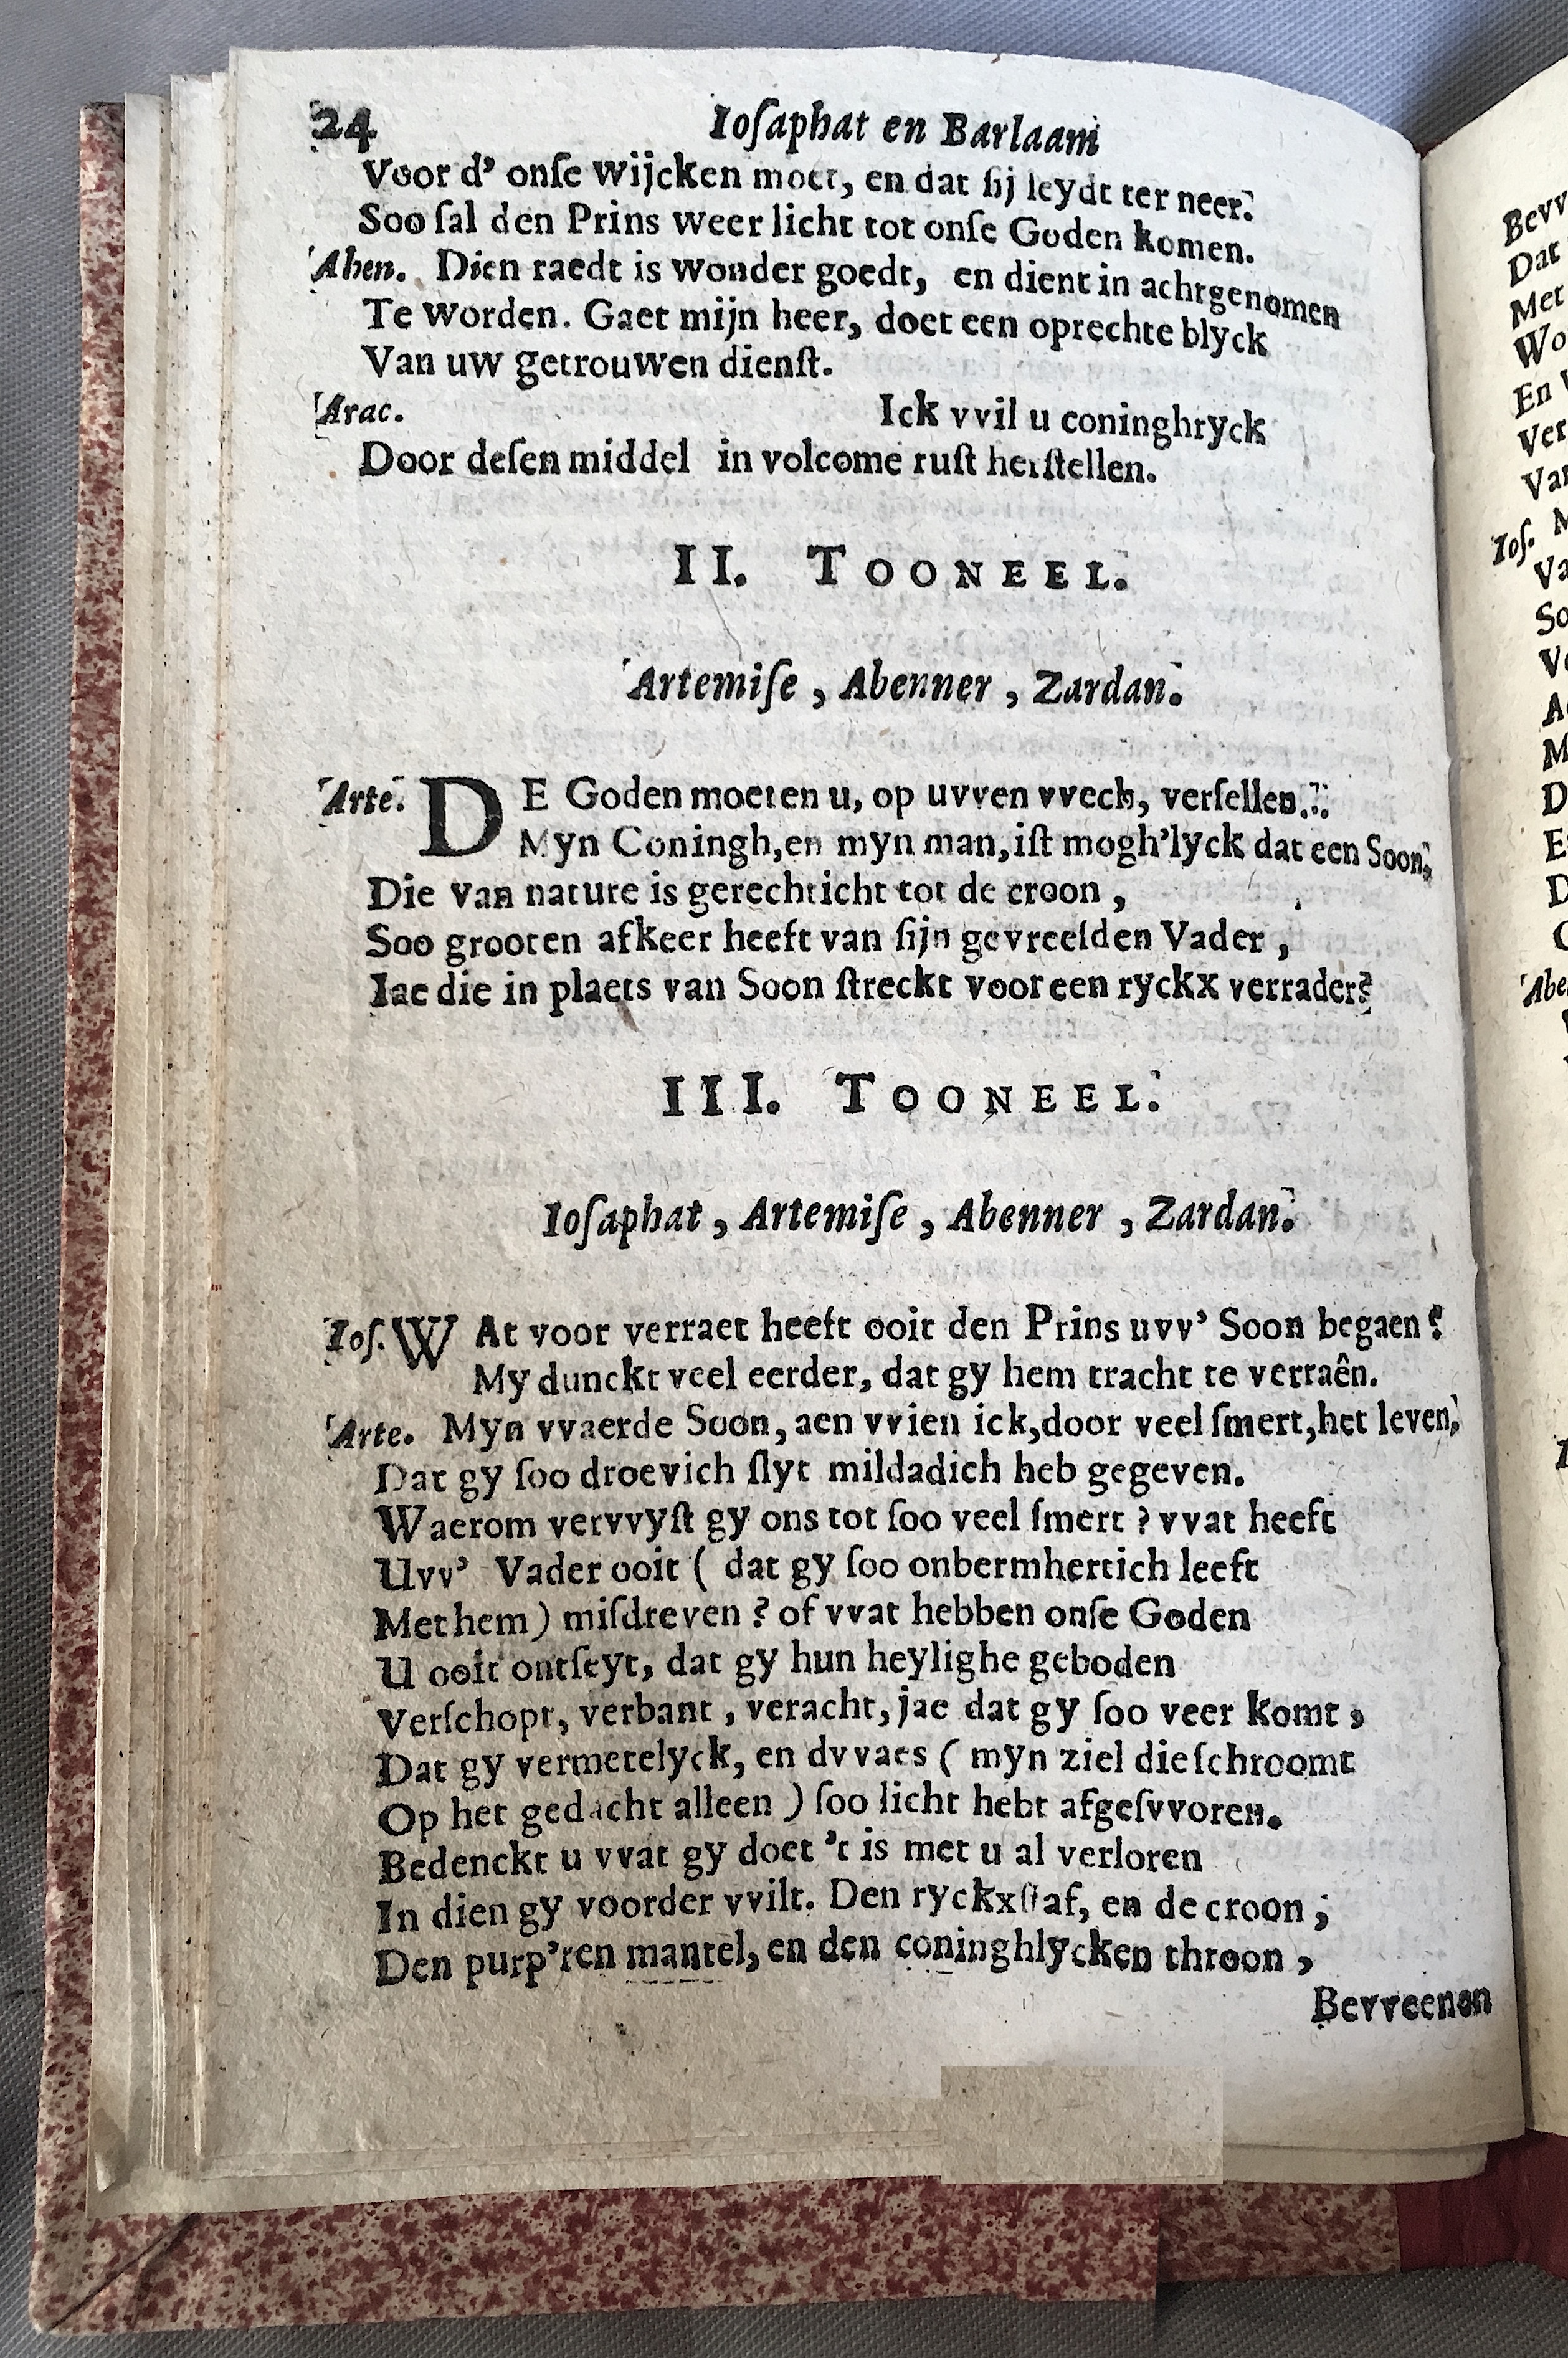 24 Ioſaphat en Barlaam
Voor d' onſe wijcken moet, en dat ſij leydt ter neer.
Soo ſal den Prins weer licht tot onſe Goden komen.
Aben. Dien raedt is wonder goedt, en dient in achtgenomen
Te worden. Gaet mijn heer, doet een oprechte blyck
Van uw getrouwen dienſt.
Arac. Ick vvil u coninghryck
Door deſen middel in volcome ruſt herſtellen.
II. TOONEEL.
Artemiſe, Abenner, Zardan.
Arte. DE Goden moeten u, op uvven vvech, verſellen.
Myn Coningh, en myn man, iſt mogh'lyck dat een Soon,
Die van nature is gerechticht tot de croon,
Soo grooten afkeer heeft van ſijn gevreeſden Vader,
Iae die in plaets van Soon ſtreckt voor een ryckx verrader?
III. TOONEEL.
Ioſaphat, Artemiſe, Abenner, Zardan.
Ioſ. WAt voor verraet heeft ooit den Prins uvv' Soon begaen?
My dunckt veel eerder, dat gy hem tracht te verraên.
Arte. Myn vvaerde Soon, aen vvien ick, door veel ſmert, het leven,
Dat gy ſoo droevich ſlyt mildadich heb gegeven.
Waerom vervvyſt gy ons tot ſoo veel ſmert? vvat heeft
Uvv' Vader ooit (dat gy ſoo onbermhertich leeft
Met hem) miſdreven? of vvat hebben onſe Goden
U ooit ontſeyt, dat gy hun heylighe geboden
Verſchopt, verbant, veracht, jae dat gy ſoo veer komt,
Dat gy vermetelyck, en dvvaes (myn ziel die ſchroomt
Op het gedacht alleen) ſoo licht hebt afgeſvvoren.
Bedenckt u vvat gy doet 't is met u al verloren
In dien gy voorder vvilt. Den ryckxſtaf, en de croon;
Den purp'ren mantel, en den coninghlycken throon,
Bevveenen
Bevv
Dat
Met
Wo
En
Ver
Van
Ioſ. M
Va
So
Ve
A
M
D
E
D
Abe